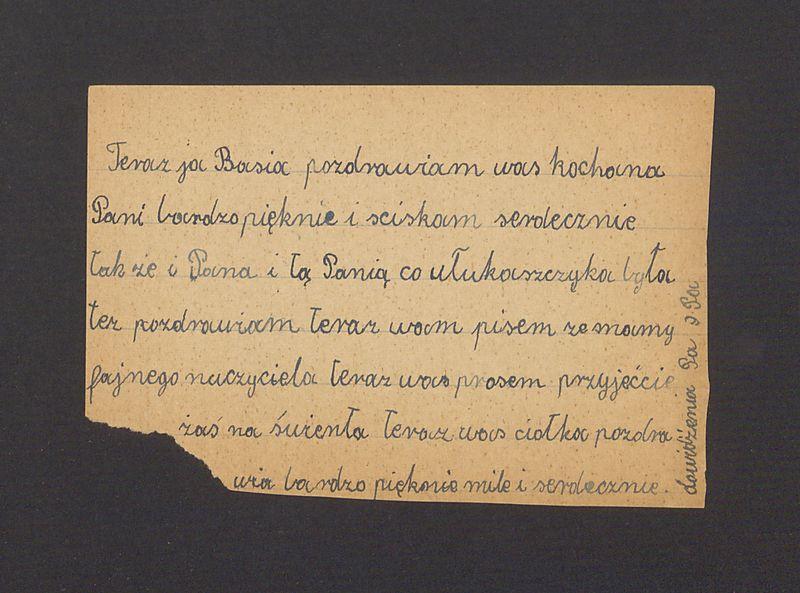 Teraz ja Basia pozdrawiam was kochana
Pani bardzo pięknie i sciskam serdecznie
tak że i Pana i tą Panią co ułukaszczyka była
tez pozdrawiam teraz wam pisem ze mamy
fajnego naczyciela teraz was prosem przyjećcie
zaś na świenta teraz was ciotka pozdra
wia bardzo pięknie mile i serdecznie.
dowidżenia Pa i Pa